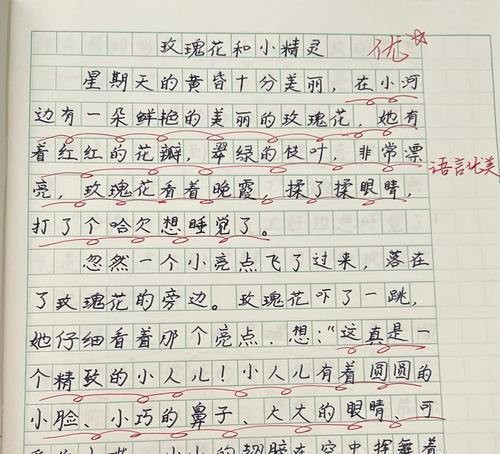 玫瑰花和小精灵 优
星期天的黄昏十分美丽，在小河
边有一朵鲜艳的美丽的玫瑰花，她有
着红红的花瓣，翠绿的枝叶，非常漂
语言优美
亮，玫瑰花看着晚霞，揉了揉眼睛，
打了个哈欠想睡觉了。
忽然一个小亮点飞了过来，落在
了玫瑰花的旁边。玫瑰花吓了一跳，
她仔细看着那个亮点，想："这真是一
个精致的小人儿！小人儿有着圆圆的
小脸、小巧的鼻子、大大的眼睛、可
小小的翅膀在空中挥舞着